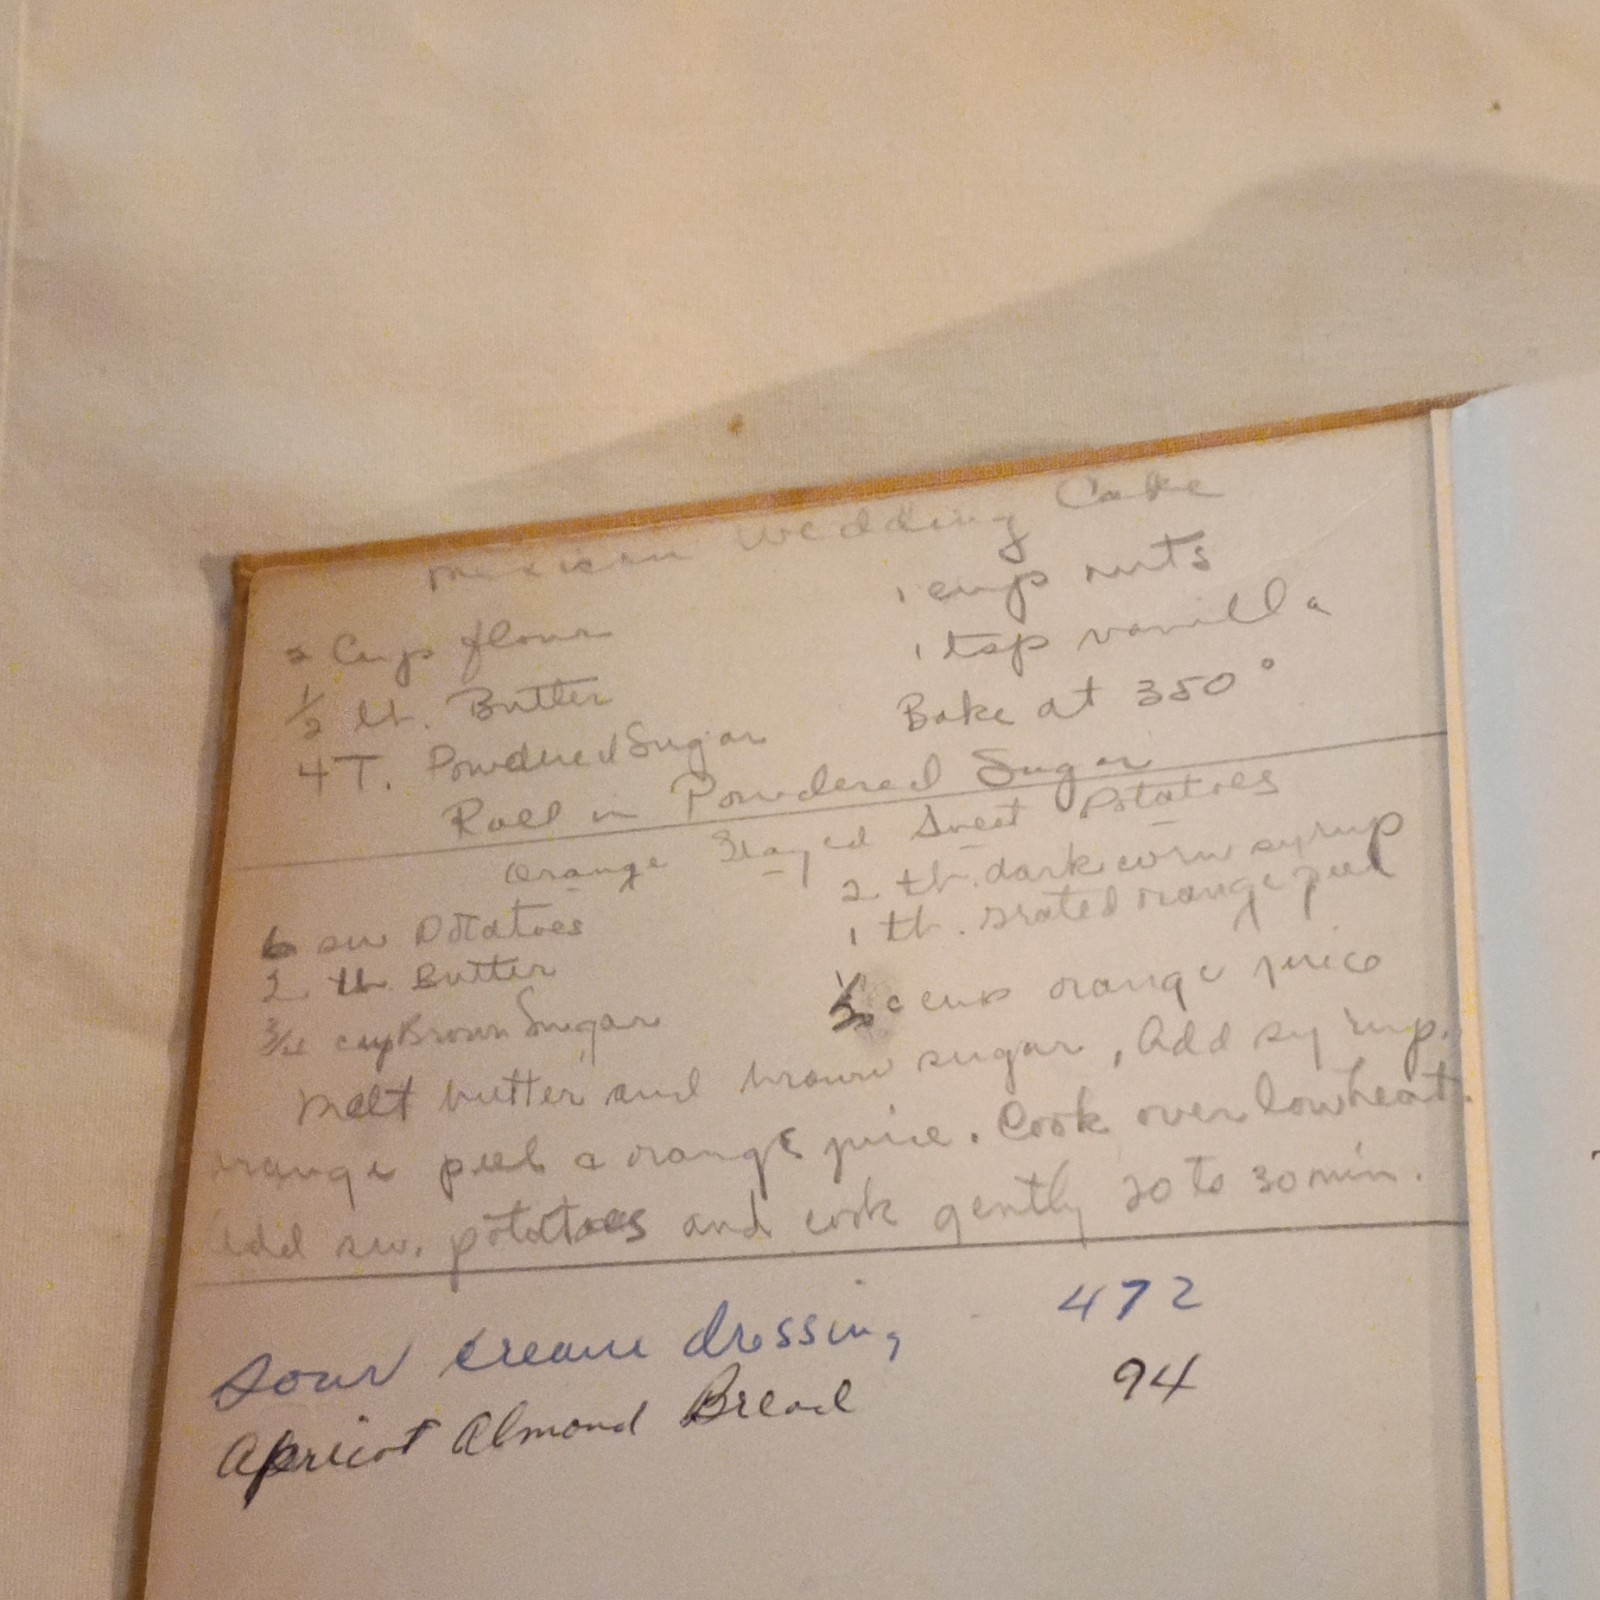 Mexican Wedding Cake
2 Cup flour
1 cup nuts
½ lb. Butter
1 tsp vanilla
4 T. Powdered Sugar
Bake at 350°
Roll in Powdered Sugar
Orange Glazed Sweet Potatoes
6 sw Potatoes
2 tb. dark corn syrup
2 tb Butter
1 tb. grated orange peel
¾ cup Brown Sugar
½ cup orange juice
Melt butter and brown sugar, Add syrup.
orange peel & orange juice. Cook over low heat.
Add sw. potatoes and cook gently 20 to 30 min.
Sour cream dressing 472
Apricot Almond Bread 94